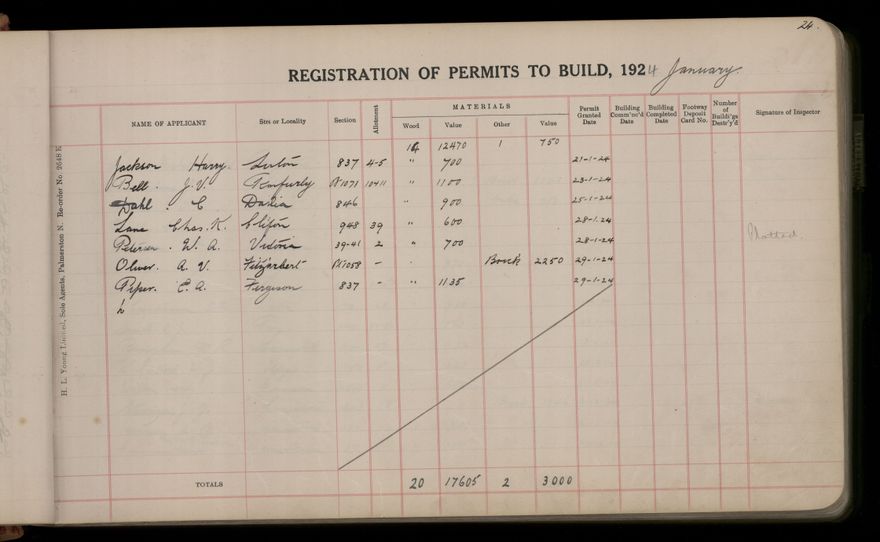 24.
REGISTRATION OF PERMITS TO BUILD, 1924 January.
NAME OF APPLICANT Strs or Locality Section Allotment MATERIALS Wood Value Other Value Permit Granted Date Building Comm'nc'd Date Building Completed Date Footway Deposit Card No. Number of Buildi'gs Destr'y'd Signature of Inspector
14 12470 1 750
Jackson Harry. Luton 837 4-5 " 700 21-1-24
Bell. J. V. Ranfurly 1071 10411 " 1100 23-1-24
Dahl. C Dahlia 846 " 900 25-1-24
Lane Chas. K. Clifton 948 39 " 600 28-1-24
Petersen. W. A. Victoria 39-41 2 " 700 28-1-24
Oliver. A. V. Fitzherbert 1058 - Brick 2250 29-1-24
Piper. E. A. Ferguson 837 - " 1135 29-1-24
TOTALS 20 17605 2 3000
H. L. Young Limited, Sole Agents, Palmerston N. Re-order No. 2648 E